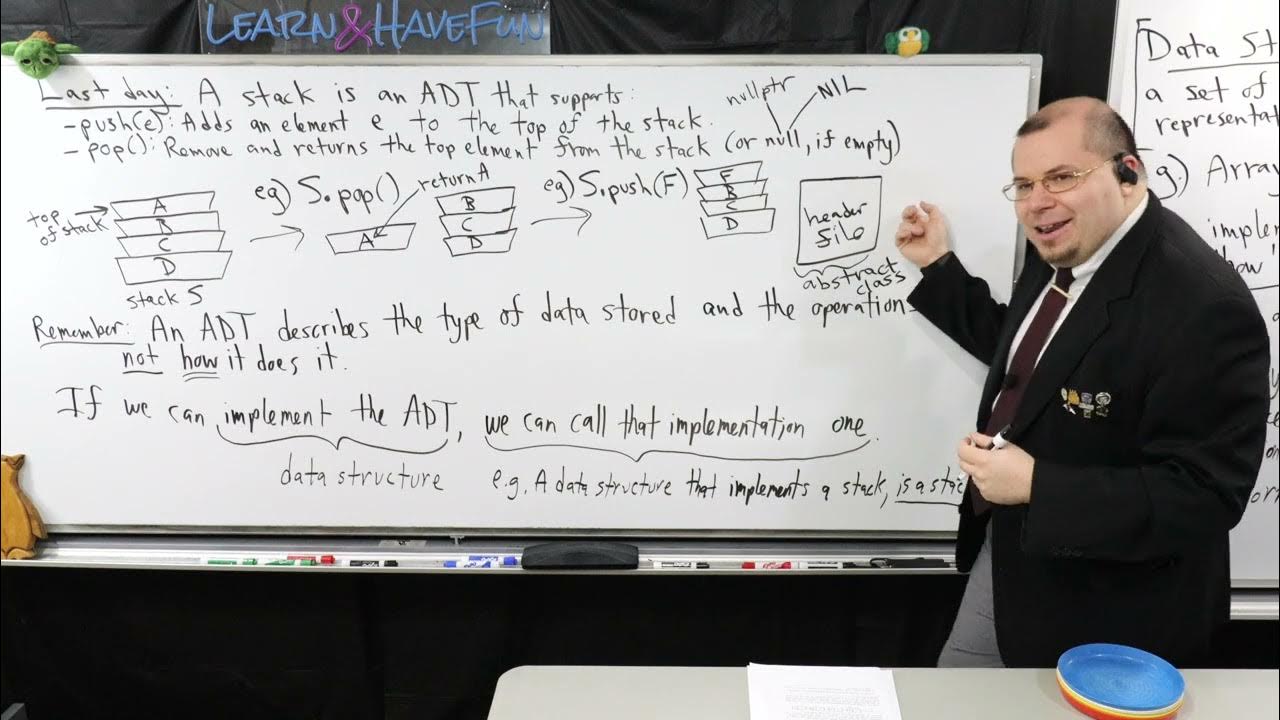 LEARN&HAVEFUN
Last day: A stack is an ADT that supports:
nullptr NIL
- push(e): Adds an element e to the top of the stack.
- pop(): Remove and returns the top element from the stack (or null, if empty)
top of stack
A
B
C
D
stack S
eg) S.pop()
return A
A
B
C
D
eg) S.push(F)
F
B
C
D
header
file
abstract
class
Remember: An ADT describes the type of data stored and the operation
not how it does it.
If we can implement the ADT, we can call that implementation one.
data structure
e.g. A data structure that implements a stack, is a stac
Data St
a set of
representat
g.) Array
implem
how